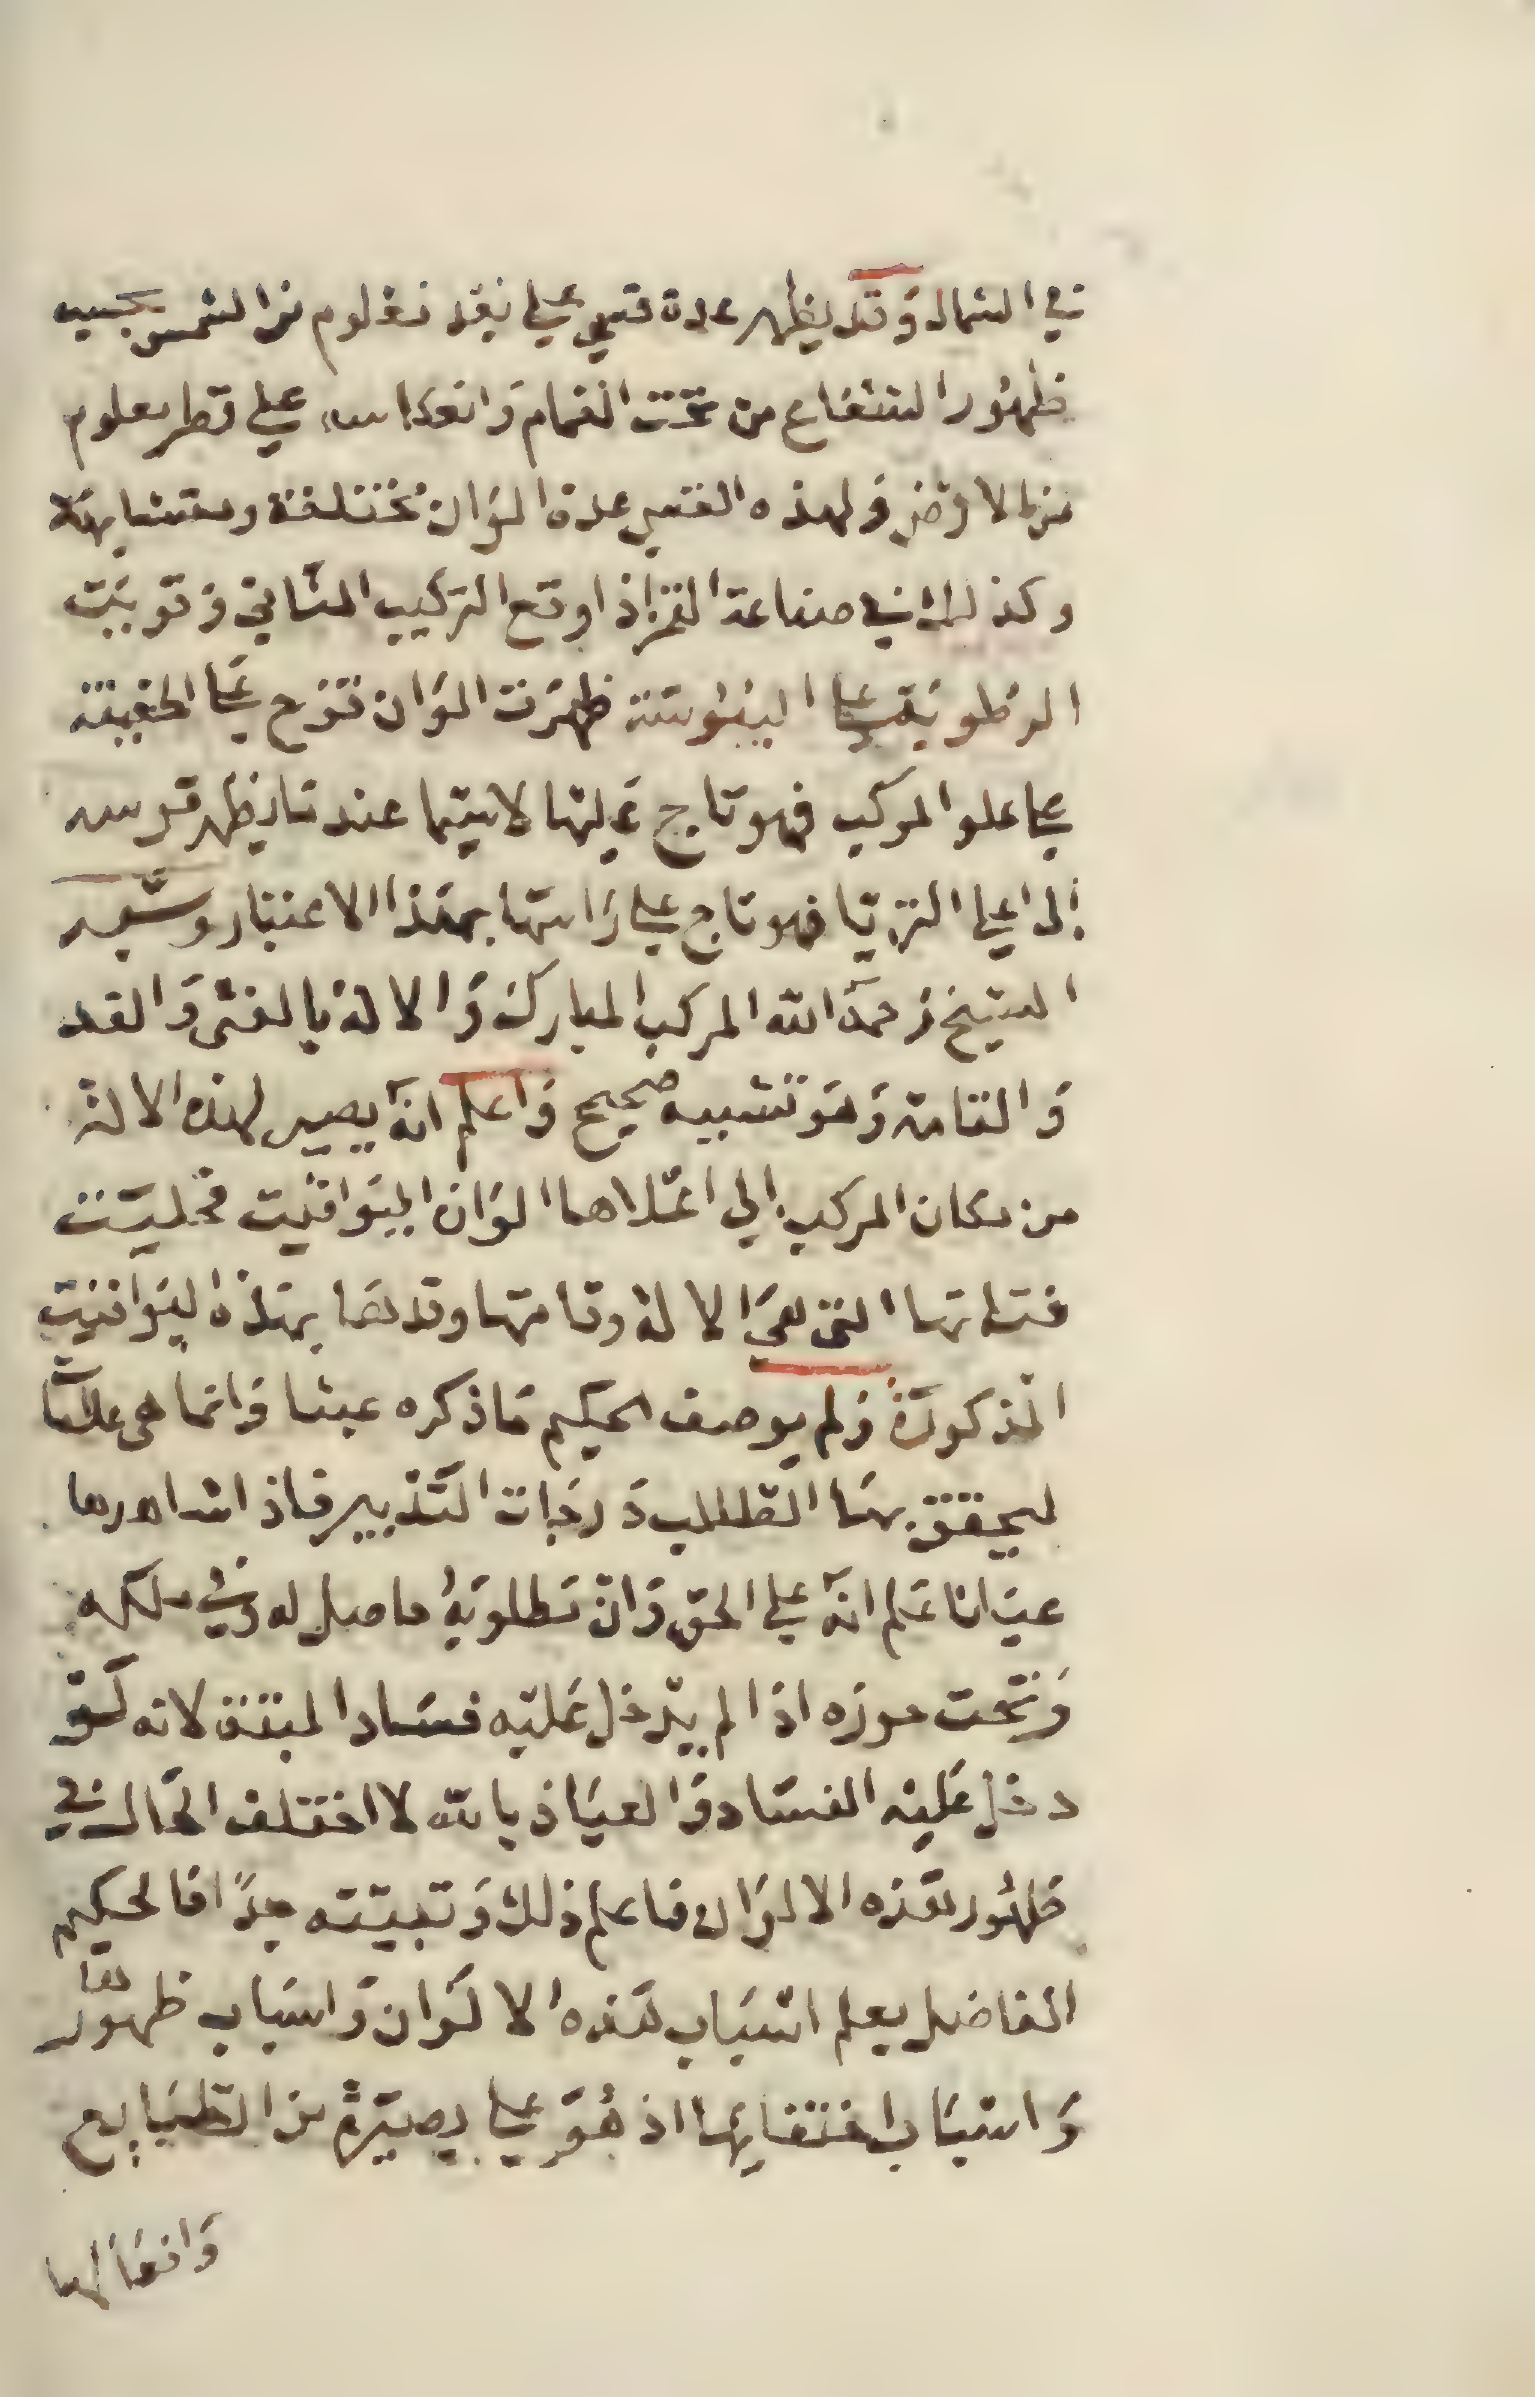 في الشمال وقد يظهر عدة قسي علي بعد معلوم من الشمس بحسب
ظهور الشعاع من تحت الغمام وانعكاسه علي قطر معلوم
من الارض ولهذه القسي عدة الوان مختلفة ومتشابهة
وكذلك في صناعة القمر اذا وقع التركيب الثاني وقويت
الرطوبة علي اليبوسة ظهرت الوان قزح علي الحقيقة
علي علو المركب فهو تاج عليها لا سيما عند ما يظهر قوسه
الي اعلي الثريا فهو تاج علي راسها بهذا الاعتبار وشبه
الشيخ رحمه الله المركب المبارك والالة بالفتي والقد
والقامة وهو تشبيه صحيح واعلم انه يصير لهذه الالة
من مكان المركب الي اعلاها الوان اليواقيت فحليت
فتاتها التي هي الالة وقامتها وقدها بهذه اليواقيت
المذكورة ولم يوصف الحكيم ما ذكره عبثا وانما هي علامات
ليحقق بها الطالب درجات التدبير فاذا شاهدها
عيانا علم انه علي الحق وان مطلوبه حاصل له وفي ملكه
وتحت حوزه اذا لم يدخل عليه فساد البتة لانه لو
دخل عليه الفساد والعياذ بالله لاختلف الحال في
ظهور هذه الالوان فاعلم ذلك وتبينه جدا فالحكيم
الفاضل يعلم اسباب هذه الالوان واسباب ظهورها
واسباب اختفايها اذ هو علي بصيرة من الطبايع
وافعالها